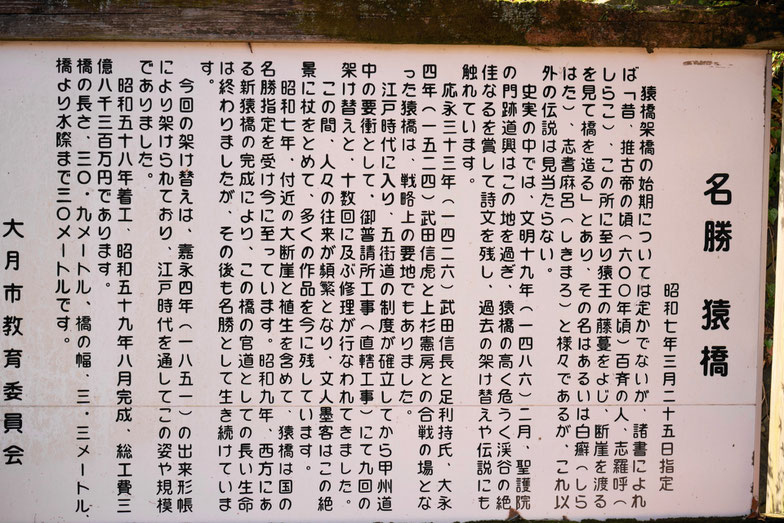 名勝　猿橋
昭和七年三月二十五日指定
猿橋架橋の始期については定かでないが、諸書によれ
ば「昔、推古帝の頃（六００年頃）百斉の人、志羅呼（
しらこ）、この所に至り猿王の藤蔓をよじ、断崖を渡る
を見て橋を造る」とあり、その名はあるいは白癬（しら
はた）、志耆麻呂（しきまろ）と様々であるが、これ以
外の伝説は見当たらない。
史実の中では、文明十九年（一四八六）二月、聖護院
の門跡道興はこの地を過ぎ、猿橋の高く危うく渓谷の絶
佳なるを賞して詩文を残し、過去の架け替えや伝説にも
触れています。
応永三十三年（一四二六）武田信長と足利持氏、大永
四年（一五二四）武田信虎と上杉憲房との合戦の場とな
った猿橋は、戦略上の要地でもありました。
江戸時代に入り、五街道の制度が確立してから甲州道
中の要衝として、御普請所工事（直轄工事）にて九回の
架け替えと、十数回に及ぶ修理が行なわれてきました。
この間、人々の往来が頻繁となり、文人墨客はこの絶
景に杖をとめて、多くの作品を今に残しています。
昭和七年、付近の大断崖と植生を含めて、猿橋は国の
名勝指定を受け今に至っています。昭和九年、西方にあ
る新猿橋の完成により、この橋の官道としての長い生命
は終わりましたが、その後も名勝として生き続けていま
す。
今回の架け替えは、嘉永四年（一八五一）の出来形帳
により架けられており、江戸時代を通してこの姿や規模
でありました。
昭和五十八年着工、昭和五十九年八月完成、総工費三
億八千三百万円であります。
橋の長さ、三０・九メートル、橋の幅、三・三メートル、
橋より水際まで三０メートルです。
大月市教育委員会